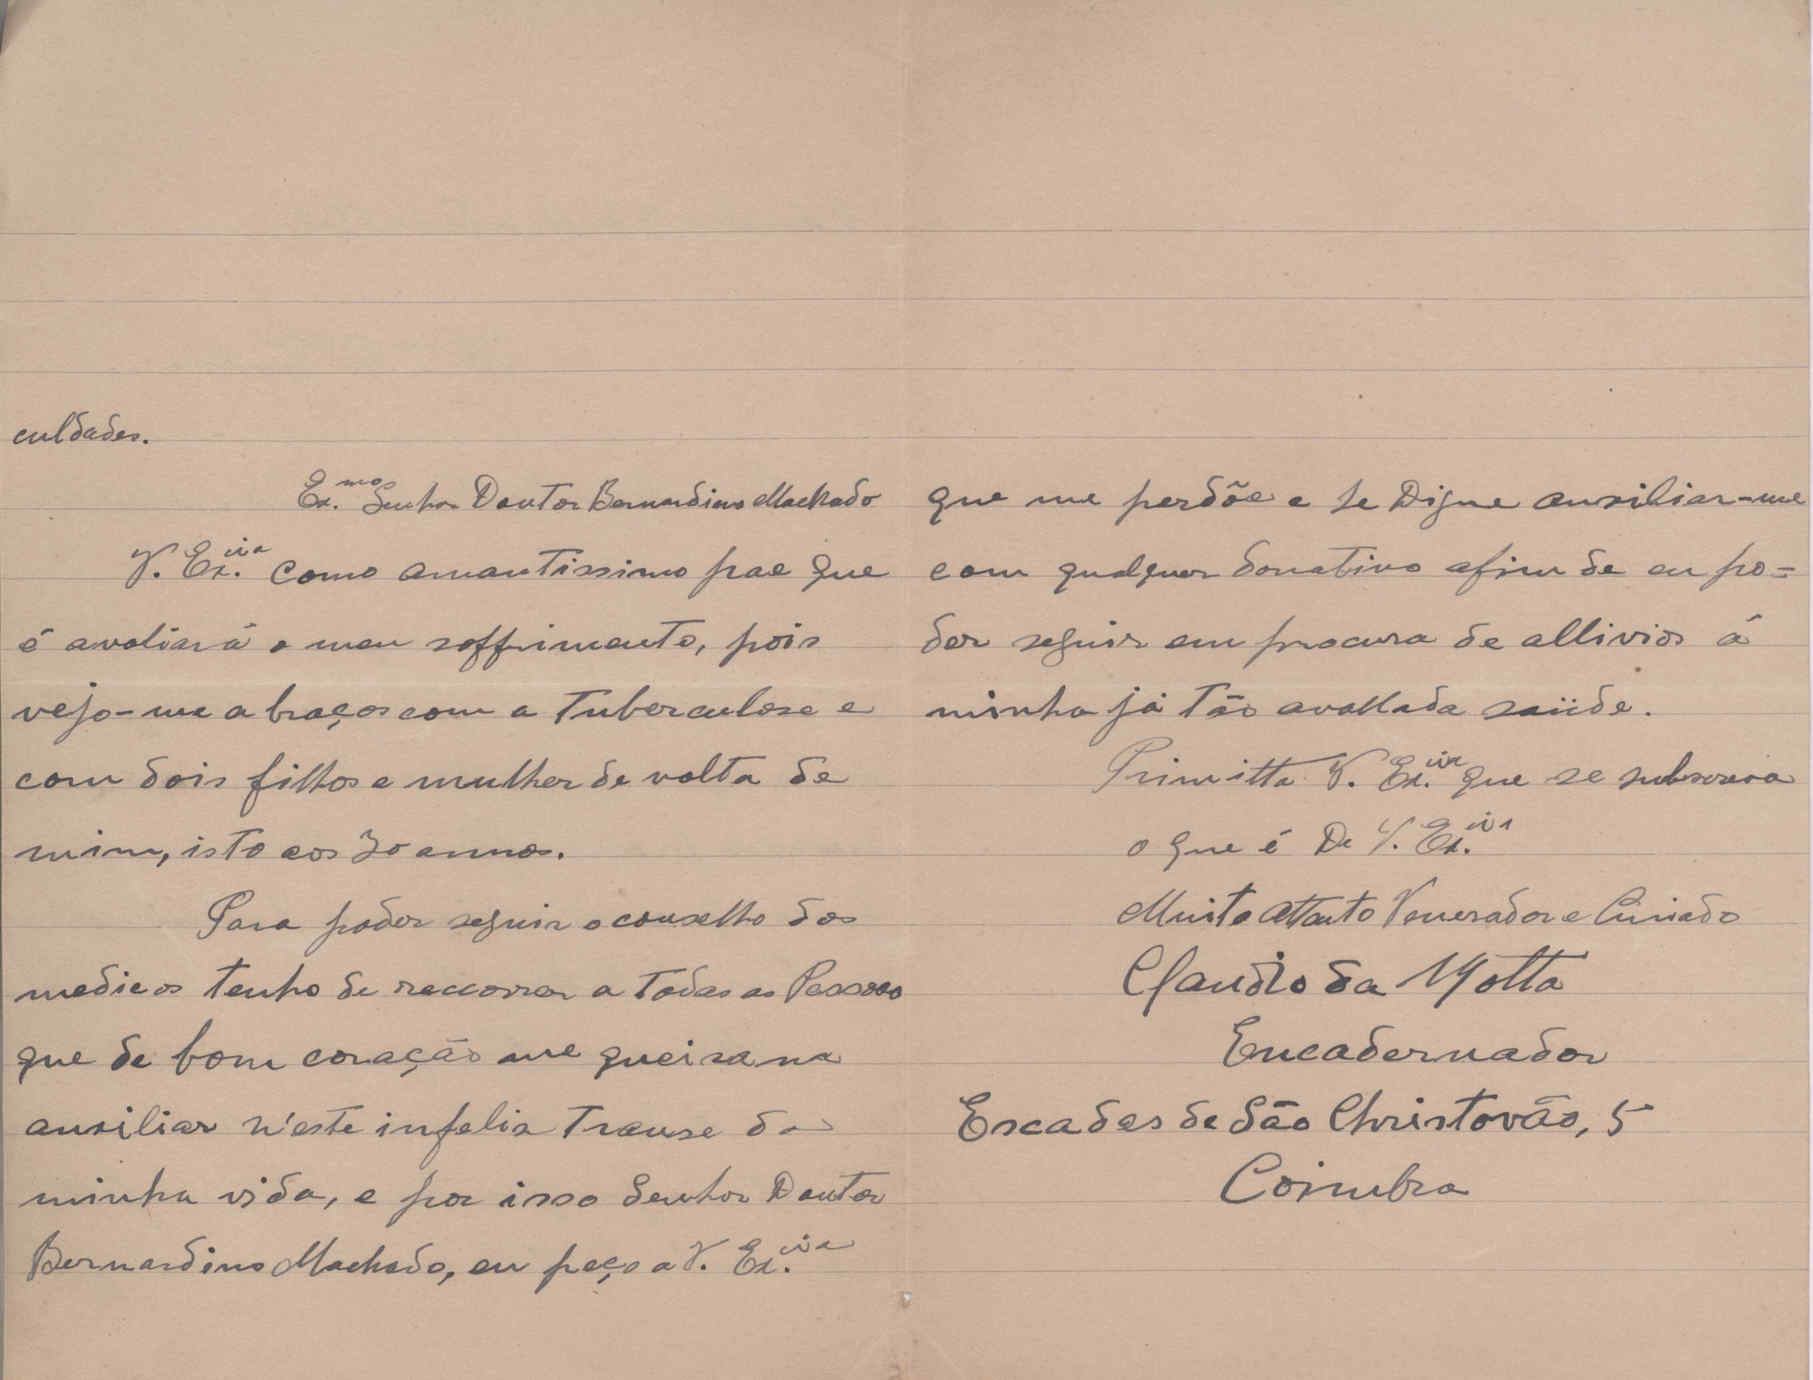 culdades.
Ex.mo Senhor Doutor Bernardino Machado
V. Ex.cia como amantissimo pae que
é avaliará o meu soffrimento, pois
vejo-me a braços com a tuberculose e
com dois filhos e mulher de volta de
mim, isto aos 30 annos.
Para poder seguir o conselho dos
medicos tenho de reccorrer a todas as Pessoas
que de bom coração me queiram
auxiliar n'este infeliz transe da
minha vida, e por isso Senhor Doutor
Bernardino Machado, eu peço a V. Ex.cia
que me perdôe e se Digne auxiliar-me
com qualquer donativo afim de eu po=
der seguir em procura de allivios á
minha já tão avallada saüde.
Primitta V. Ex.cia que se subscreva
o que é De V. Ex.cia
Muito Attento Venerador e Criado
Claudio da Motta
Encadernador
Escadas de São Christovão, 5
Coimbra